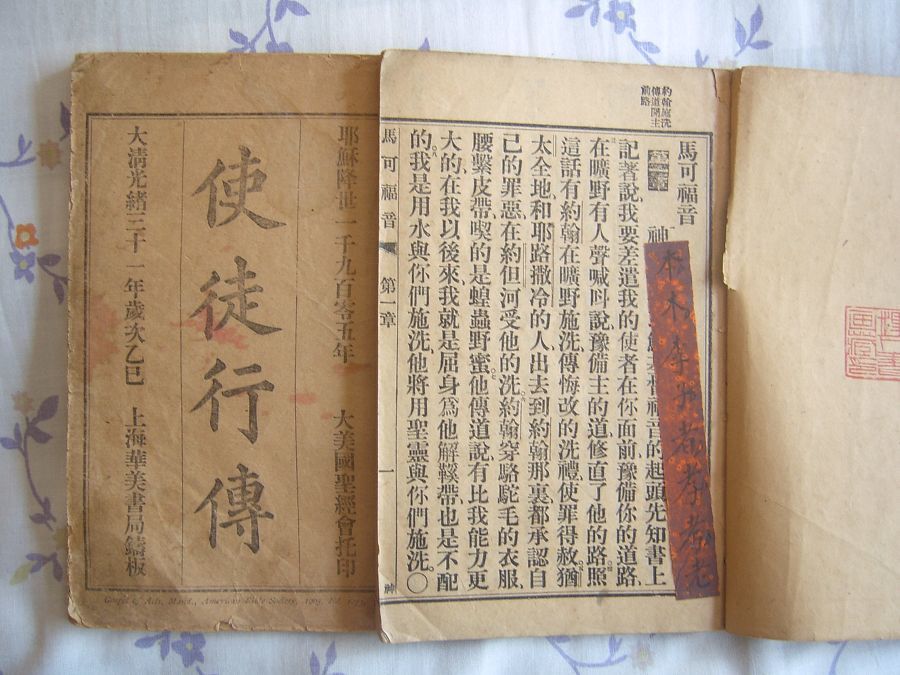 耶穌降世一千九百零五年 大美國聖經會托印
使徒行傳
大清光緒三十一年歲次乙巳 上海華美書局鑄板
Gospel of Acts, Mand., American Bible Society, 1905.
約翰施洗
傳道開主
前路
馬可福音
第一章
神 穌基督福音的起頭先知書上
記著說、我要差遣我的使者在你面前、豫備你的道路、
在曠野有人聲喊呌說、豫備主的道、修直了他的路、照
這話有約翰在曠野施洗、傳悔改的洗禮、使罪得赦、猶
太全地、和耶路撒冷的人、出去到約翰那裏、都承認自
己的罪惡、在約但河受他的洗、約翰穿駱駝毛的衣服、
腰繫皮帶、喫的是蝗蟲野蜜、他傳道說、有比我能力更
大的、在我以後來、我就是屈身爲他解鞵帶、也是不配
的、我是用水與你們施洗、他將用聖靈與你們施洗。〇
馬可福音 第一章 一 神